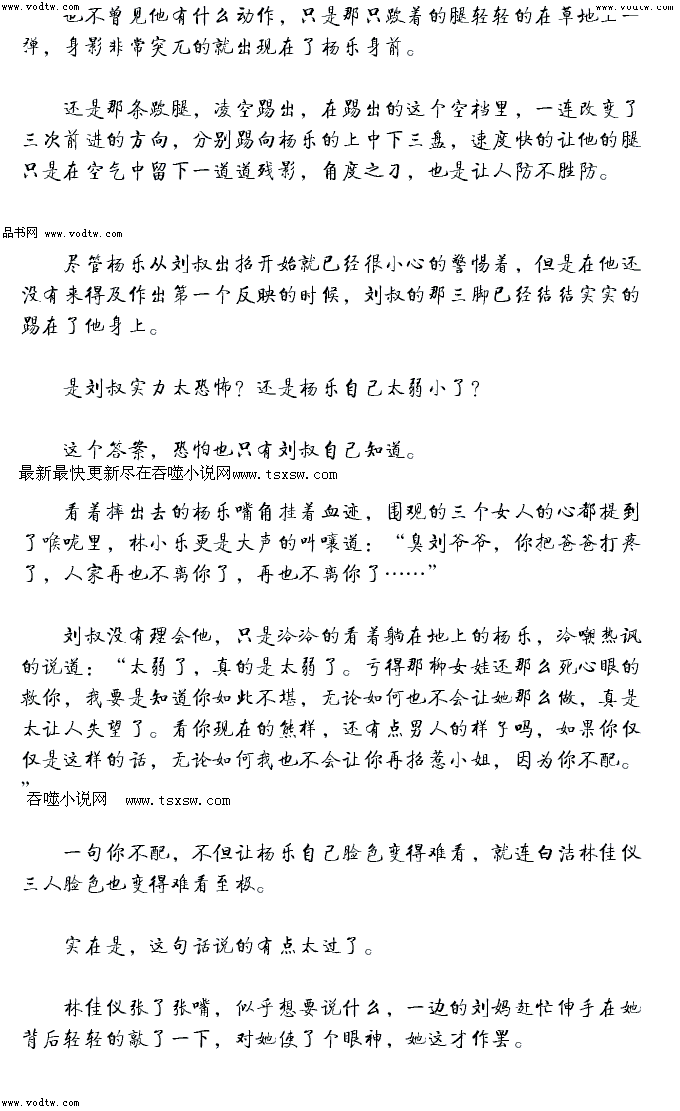 www.vodtw.com www.vodtw.com www.vodtw.com
也不曾见他有什么动作，只是那只跛着的腿轻轻的在草地上一
弹，身影非常突兀的就出现在了杨乐身前。
还是那条跛腿，凌空踢出，在踢出的这个空档里，一连改变了
三次前进的方向，分别踢向杨乐的上中下三盘，速度快的让他的腿
只是在空气中留下一道道残影，角度之刁，也是让人防不胜防。
品书网 www.vodtw.com
尽管杨乐从刘叔出招开始就已经很小心的警惕着，但是在他还
没有来得及作出第一个反映的时候，刘叔的那三脚已经结结实实的
踢在了他身上。
是刘叔实力太恐怖？还是杨乐自己太弱小了？
这个答案，恐怕也只有刘叔自己知道。
最新最快更新尽在吞噬小说网www.tsxsw.com
看着摔出去的杨乐嘴角挂着血迹，围观的三个女人的心都提到
了喉咙里，林小乐更是大声的叫嚷道：“臭刘爷爷，你把爸爸打疼
了，人家再也不离你了，再也不离你了……”
刘叔没有理会他，只是冷冷的看着躺在地上的杨乐，冷嘲热讽
的说道：“太弱了，真的是太弱了。亏得那柳女娃还那么死心眼的
救你，我要是知道你如此不堪，无论如何也不会让她那么做，真是
太让人失望了。看你现在的熊样，还有点男人的样子吗，如果你仅
仅是这样的话，无论如何我也不会让你再招惹小姐，因为你不配。
”
吞噬小说网 www.tsxsw.com
一句你不配，不但让杨乐自己脸色变得难看，就连白洁林佳仪
三人脸色也变得难看至极。
实在是，这句话说的有点太过了。
林佳仪张了张嘴，似乎想要说什么，一边的刘妈赶忙伸手在她
背后轻轻的敲了一下，对她使了个眼神，她这才作罢。
www.vodtw.com